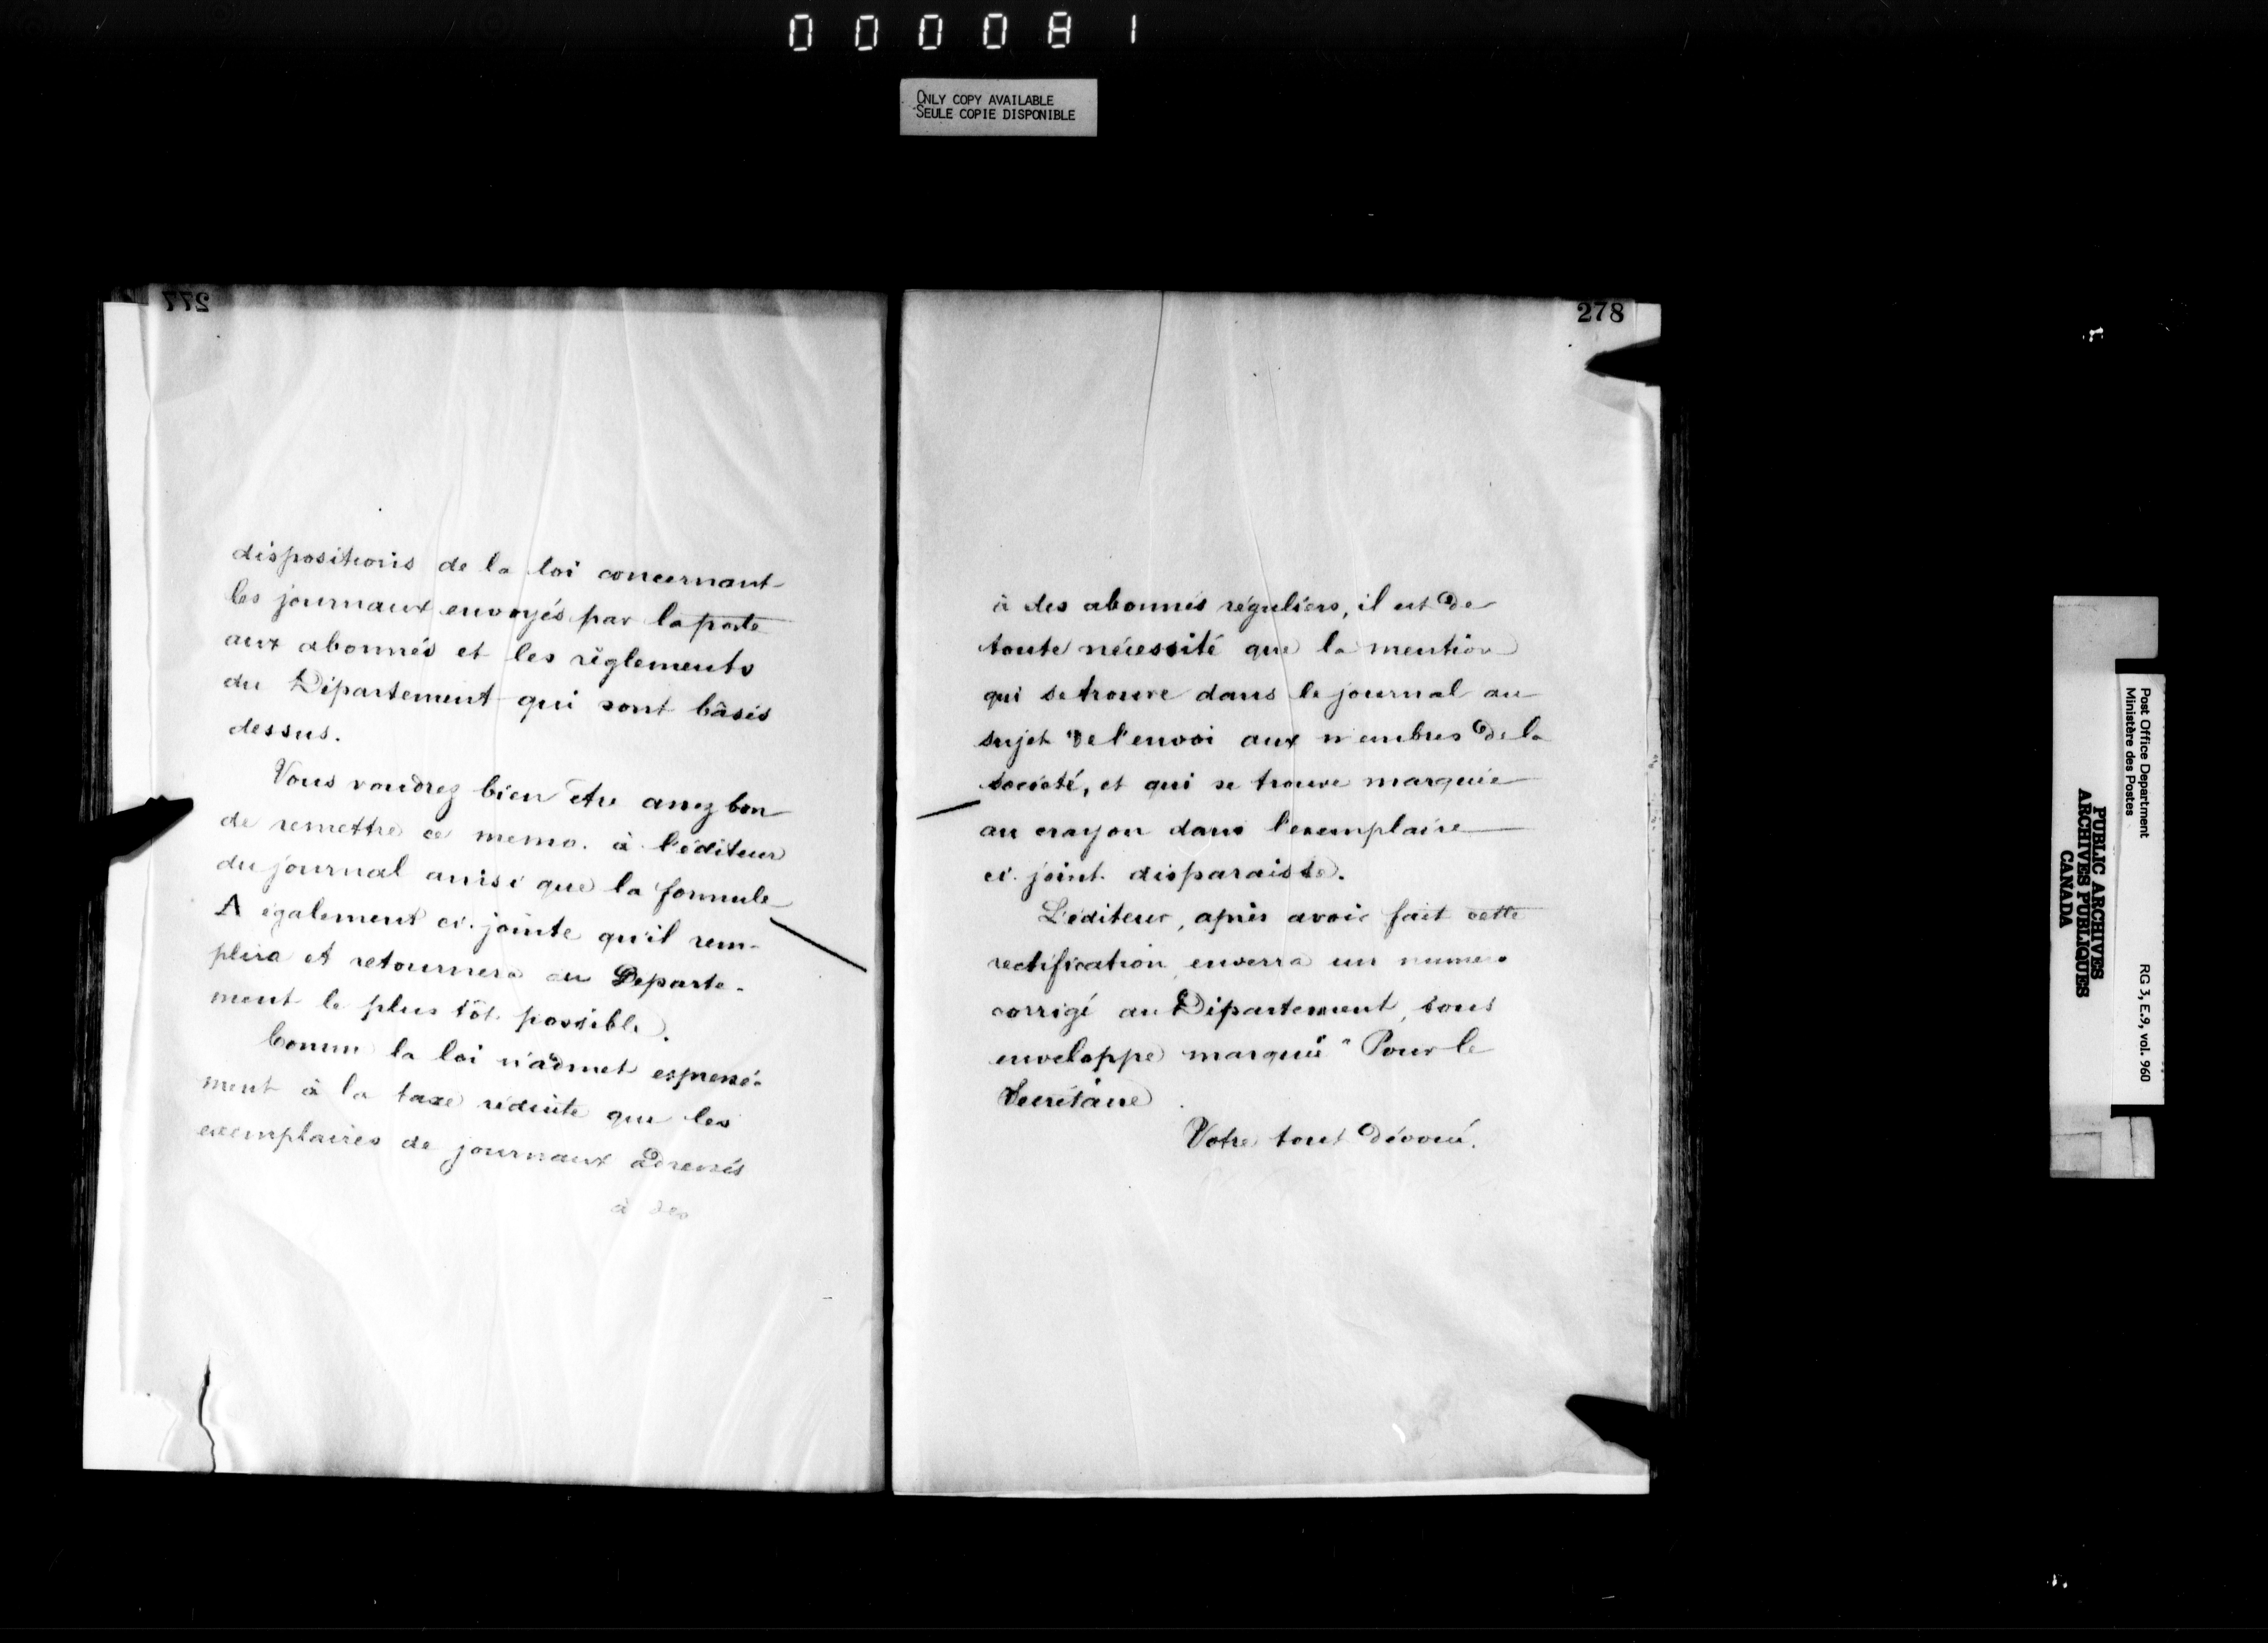 000081
ONLY COPY AVAILABLE
SEULE COPIE DISPONIBLE
277
dispositions de la loi concernant
les journaux envoyés par la poste
aux abonnés et les règlements
du Département qui sont bâsés
dessus.
Vous voudrez bien être assez bon
de remettre ce memo. à l'éditeur
du journal ainsi que la formule
A également ci-jointe qu'il rem-
plira et retournera au Departe-
ment le plus tôt possible.
Comme la loi n'admet expressé-
ment à la taxe réduite que les
exemplaires de journaux adressés
à des
278
à des abonnés réguliers, il est de
toute nécessité que la mention
qui se trouve dans le journal au
sujet de l'envoi aux membres de la
société, et qui se trouve marquée
au crayon dans l'exemplaire
ci-joint disparaisse.
L'éditeur, après avoir fait cette
rectification, enverra un numero
corrigé au Département, sous
enveloppe marquée "Pour le
Secrétaire
Votre tout dévoué.
Post Office Department
Ministère des Postes
RG 3, E.9, vol. 960
PUBLIC ARCHIVES
ARCHIVES PUBLIQUES
CANADA